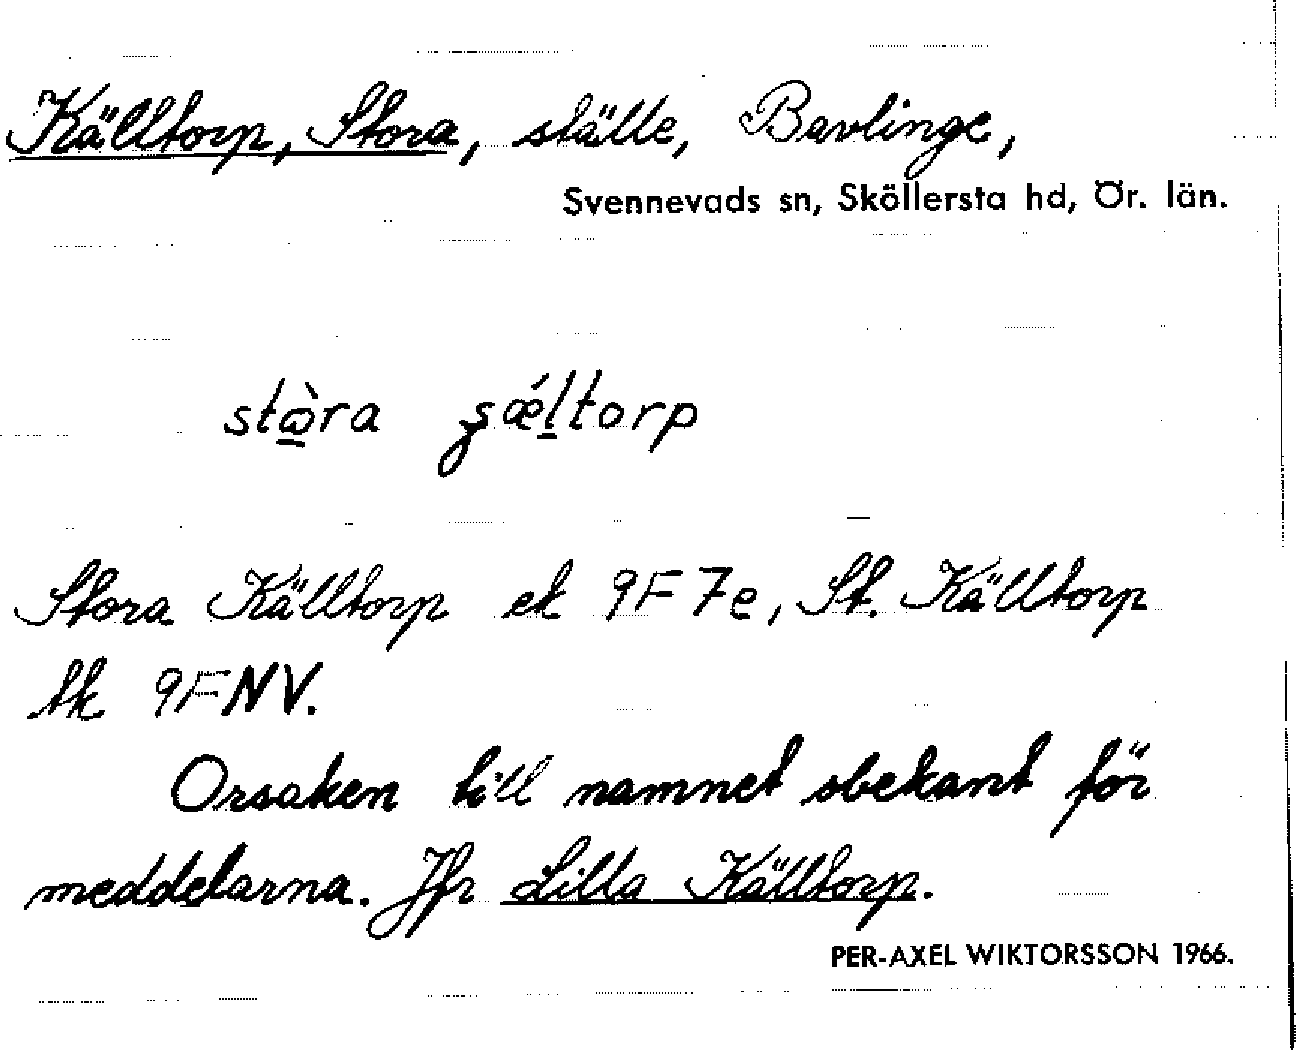 Källtorp, Stora, ställe, Bavlinge,
Svennevads sn, Sköllersta hd, Ör. län.
stora
Stora Källtorp ek 9F7e, St. Källtorp
tk 9FNV.
Orsaken till namnet obekant för
meddelarna. Jfr Lilla Källtorp.
PER-AXEL WIKTORSSON 1966.